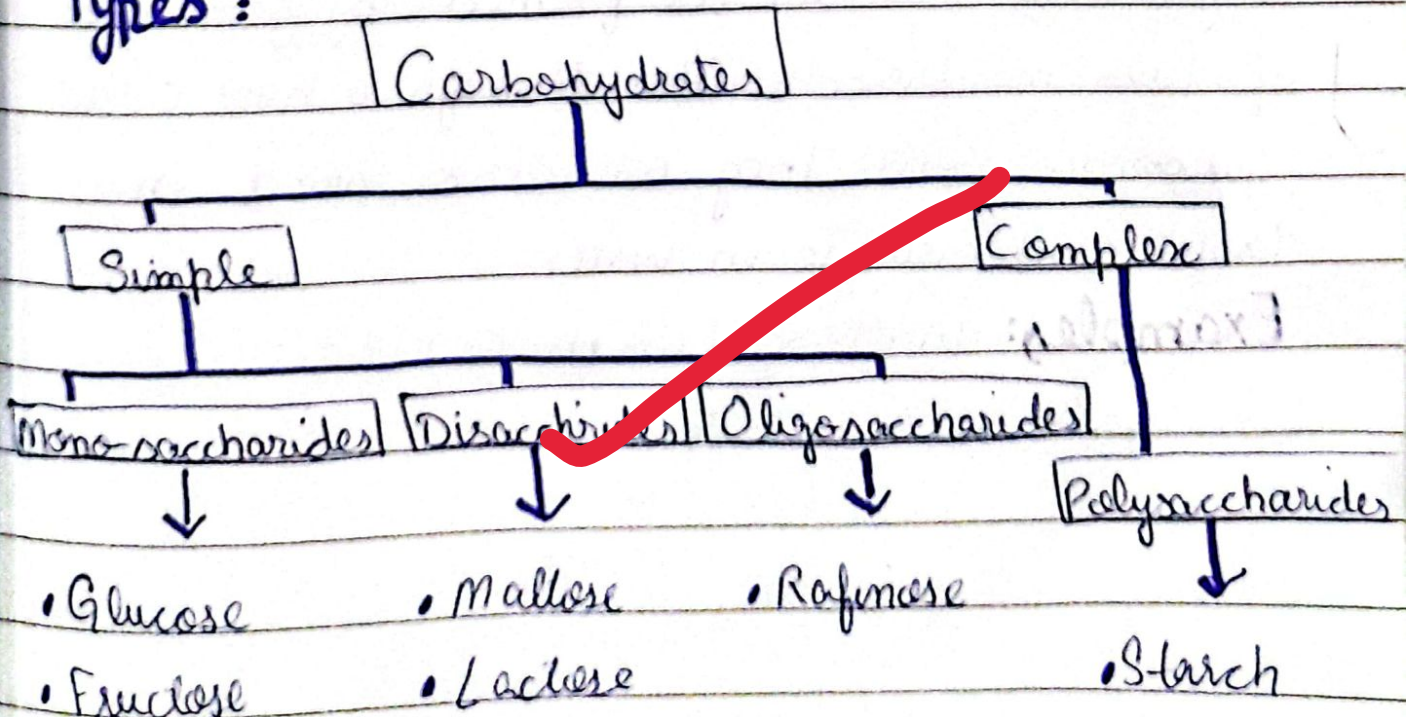 Types :
Carbohydrates
Simple Complex
Mono-saccharides Disacchirides Oligosaccharides
Polysaccharides
• Glucose • Maltose • Rafinose
• Fructose • Lactose • Starch